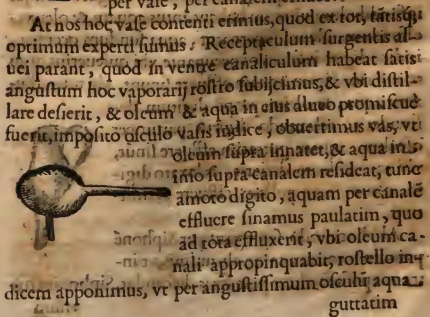 per vase, per canalem
At nos hoc vase contenti erimus, quod ex tot, tātisq;
optimum experti sumus: Receptaculum surgentis al-
uei parant, quod in ventre canaliculum habeat satis
angustum hoc vaporarij rostro subijcimus, & vbi distil-
lare desierit, & oleum & aqua in eius alueo promiscuè
fuerit, imposito osculo vasis indice, obuertimus vás, vt
oleum supra innatet, & aqua in
imo supra canalem resideat, tunc
amoto digito, aquam per canalē
effluere sinamus paulatim, quo
ad tota effluxerit, vbi oleum ca-
nali appropinquabit, rostello in-
dicem apponimus, vt per angustissimum osculū aqua
guttatim